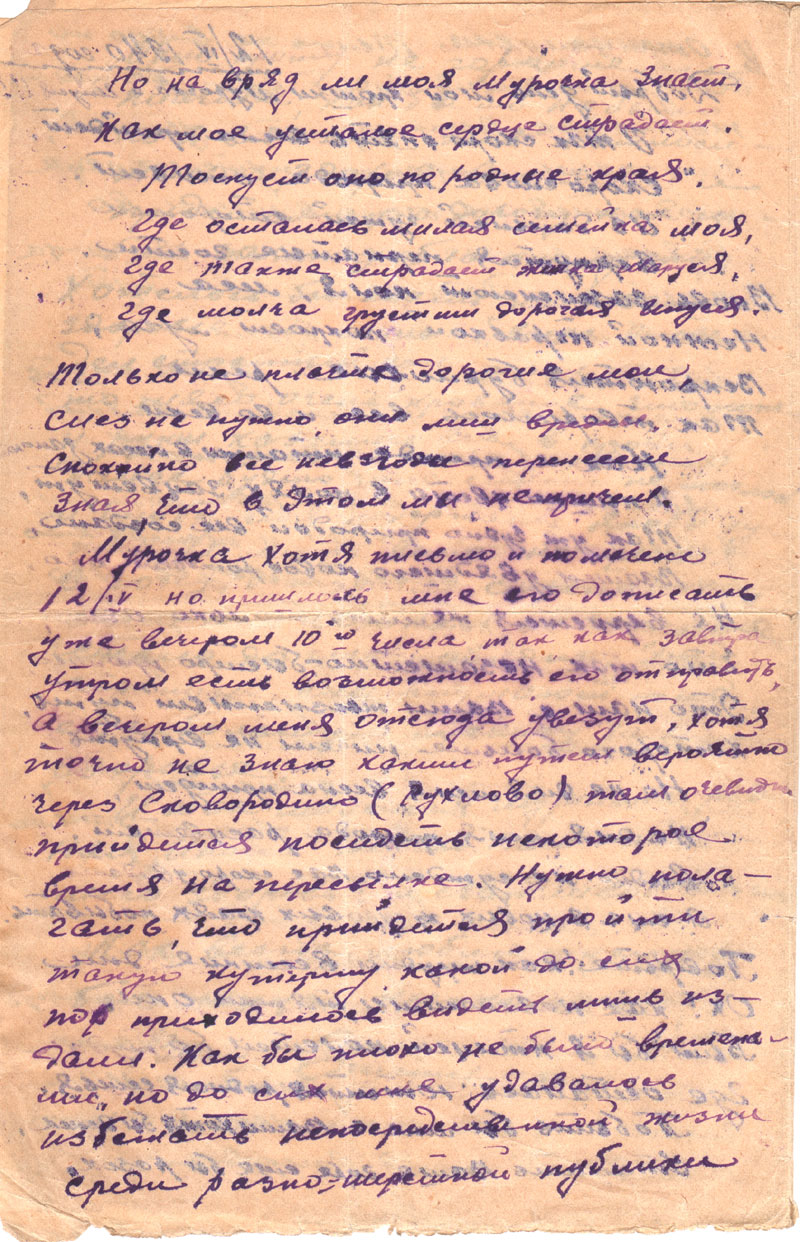 Но на вряд ли моя Мурочка знает,
Как мое усталое сердце страдает.
Тоскует оно по родные края,
Где осталась милая семейка моя,
Где также страдает жинка Маруся,
Где молча грустит дорогая Инуся.
Только не плачте дорогие мои,
Слез не нужно, они лиш вредны.
Спокойно все невзгоды перенесем
Зная, что в этом мы не причем.
Мурочка хотя письмо и помечено
12/IV но пришлось мне его дописать
уже вечером 10го числа так как завтра
утром есть возможность его отправить,
А вечером меня отсюда увезут, хотя
точно не знаю каким путем вероятно
через Сковородино (Рухлово) там очевидно
прийдется посидеть некоторое
время на пересылке. Нужно пола-
гать, что прийдется пройти
такую кутерьму какой до сих
пор приходилось видеть лишь из-
дали. Как бы плохо не было времена-
ми, но до сих мне удавалось
избежать непосредственной жизни
среди разно-шерстной публики